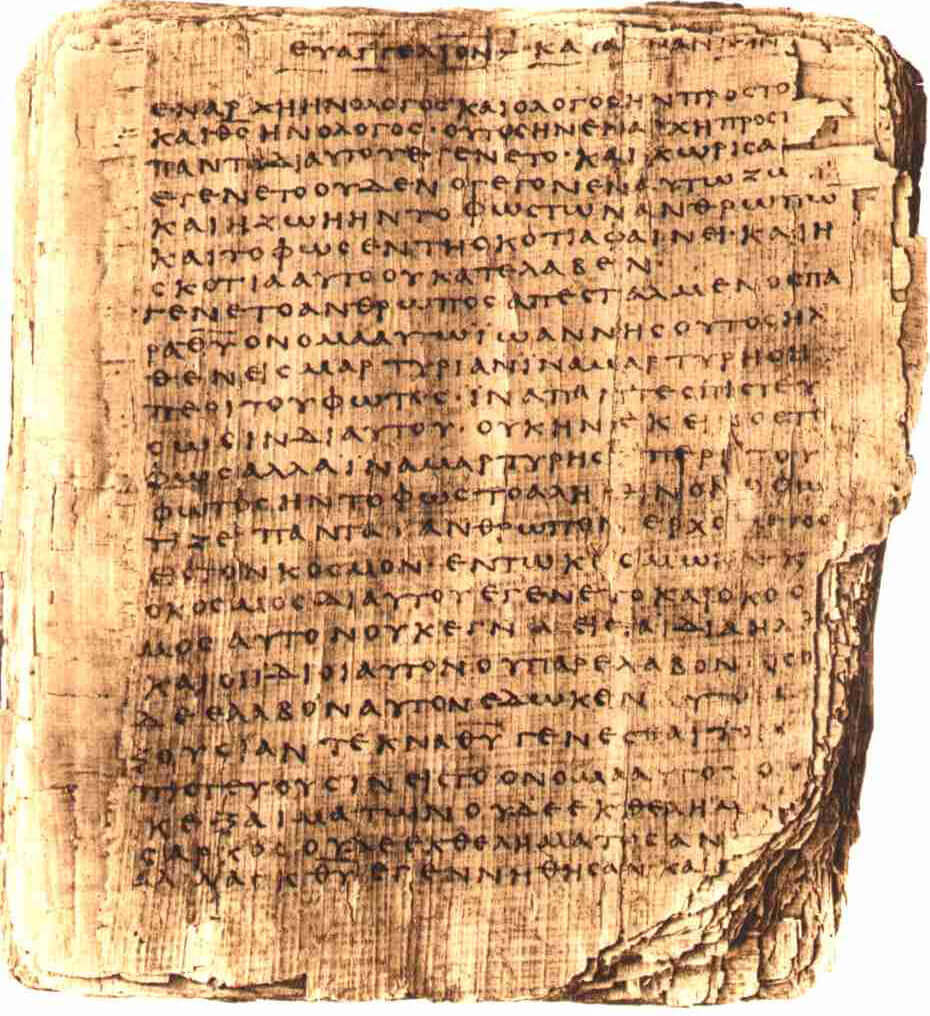 ΕΥΑΓΓΕΛΙΟΝ ΚΑΤΑ
ΕΝ ΑΡΧΗ ΗΝ Ο ΛΟΓΟΣ ΚΑΙ Ο ΛΟΓΟΣ ΗΝ ΠΡΟΣ ΤΟ
ΚΑΙ ΘΣ ΗΝ Ο ΛΟΓΟΣ · ΟΥΤΟΣ ΗΝ ΕΝ ΑΡΧΗ ΠΡΟΣ
ΠΑΝΤΑ ΔΙ ΑΥΤΟΥ ΕΓΕΝΕΤΟ · ΚΑΙ ΧΩΡΙΣ
ΕΓΕΝΕΤΟ ΟΥΔΕΝ Ο ΓΕΓΟΝΕΝ ΑΥΤΩ
ΚΑΙ Η ΖΩΗ ΗΝ ΤΟ ΦΩΣ ΤΩΝ ΑΝΘΡΩΠΩ
ΚΑΙ ΤΟ ΦΩΣ ΕΝ ΤΗ ΣΚΟΤΙΑ ΦΑΙΝΕΙ · ΚΑΙ Η
ΣΚΟΤΙΑ ΑΥΤΟ ΟΥ ΚΑΤΕΛΑΒΕΝ ·
ΓΕΝΕΤΟ ΑΝΘΡΩΠΟΣ ΑΠΕΣΤΑΛΜΕΝΟΣ ΠΑ
ΡΑ ΘΥ ΟΝΟΜΑ ΑΥΤΩ ΙΩΑΝΝΗΣ ΟΥΤΟΣ ΗΛ
ΘΕΝ ΕΙΣ ΜΑΡΤΥΡΙΑΝ ΙΝΑ ΜΑΡΤΥΡΗΣΗ
ΠΕΡΙ ΤΟΥ ΦΩΤΟΣ · ΙΝΑ ΠΑΝΤΕΣ ΠΙΣΤΕΥ
ΣΩΣΙΝ ΔΙ ΑΥΤΟΥ · ΟΥΚ ΗΝ ΕΚΕΙΝΟΣ ΤΟ
ΦΩΣ ΑΛΛΑ ΙΝΑ ΜΑΡΤΥΡΗΣΗ ΠΕΡΙ ΤΟΥ
ΦΩΤΟΣ ΗΝ ΤΟ ΦΩΣ ΤΟ ΑΛΗΘΙΝΟΝ
ΤΙΖΕΙ ΠΑΝΤΑ ΑΝΘΡΩΠΟΝ
ΕΙΣ ΤΟΝ ΚΟΣΜΟΝ · ΕΝ ΤΩ ΚΟΣΜΩ
Ο ΚΟΣΜΟΣ ΔΙ ΑΥΤΟΥ ΕΓΕΝΕΤΟ ΚΑΙ Ο ΚΟΣ
ΜΟΣ ΑΥΤΟΝ ΟΥΚ ΕΓΝΩ ΕΙΣ ΤΑ ΙΔΙΑ ΗΛΘΕ
ΚΑΙ ΟΙ ΙΔΙΟΙ ΑΥΤΟΝ ΟΥ ΠΑΡΕΛΑΒΟΝ · ΟΣΟΙ
ΔΕ ΕΛΑΒΟΝ ΑΥΤΟΝ ΕΔΩΚΕΝ
ΞΟΥΣΙΑΝ ΤΕΚΝΑ ΘΥ ΓΕΝΕΣΘΑΙ
ΠΙΣΤΕΥΟΥΣΙΝ ΕΙΣ ΤΟ ΟΝΟΜΑ ΑΥΤΟΥ
Κ ΕΞ ΑΙΜΑΤΩΝ ΟΥΔΕ ΕΚ ΘΕΛΗΜΑ
ΣΑΡΚΟΣ ΟΥΔΕ ΕΚ ΘΕΛΗΜΑΤΟΣ ΑΝ
ΑΛΛΑ ΕΚ ΘΥ ΕΓΕΝΝΗΘΗΣΑΝ ΚΑΙ